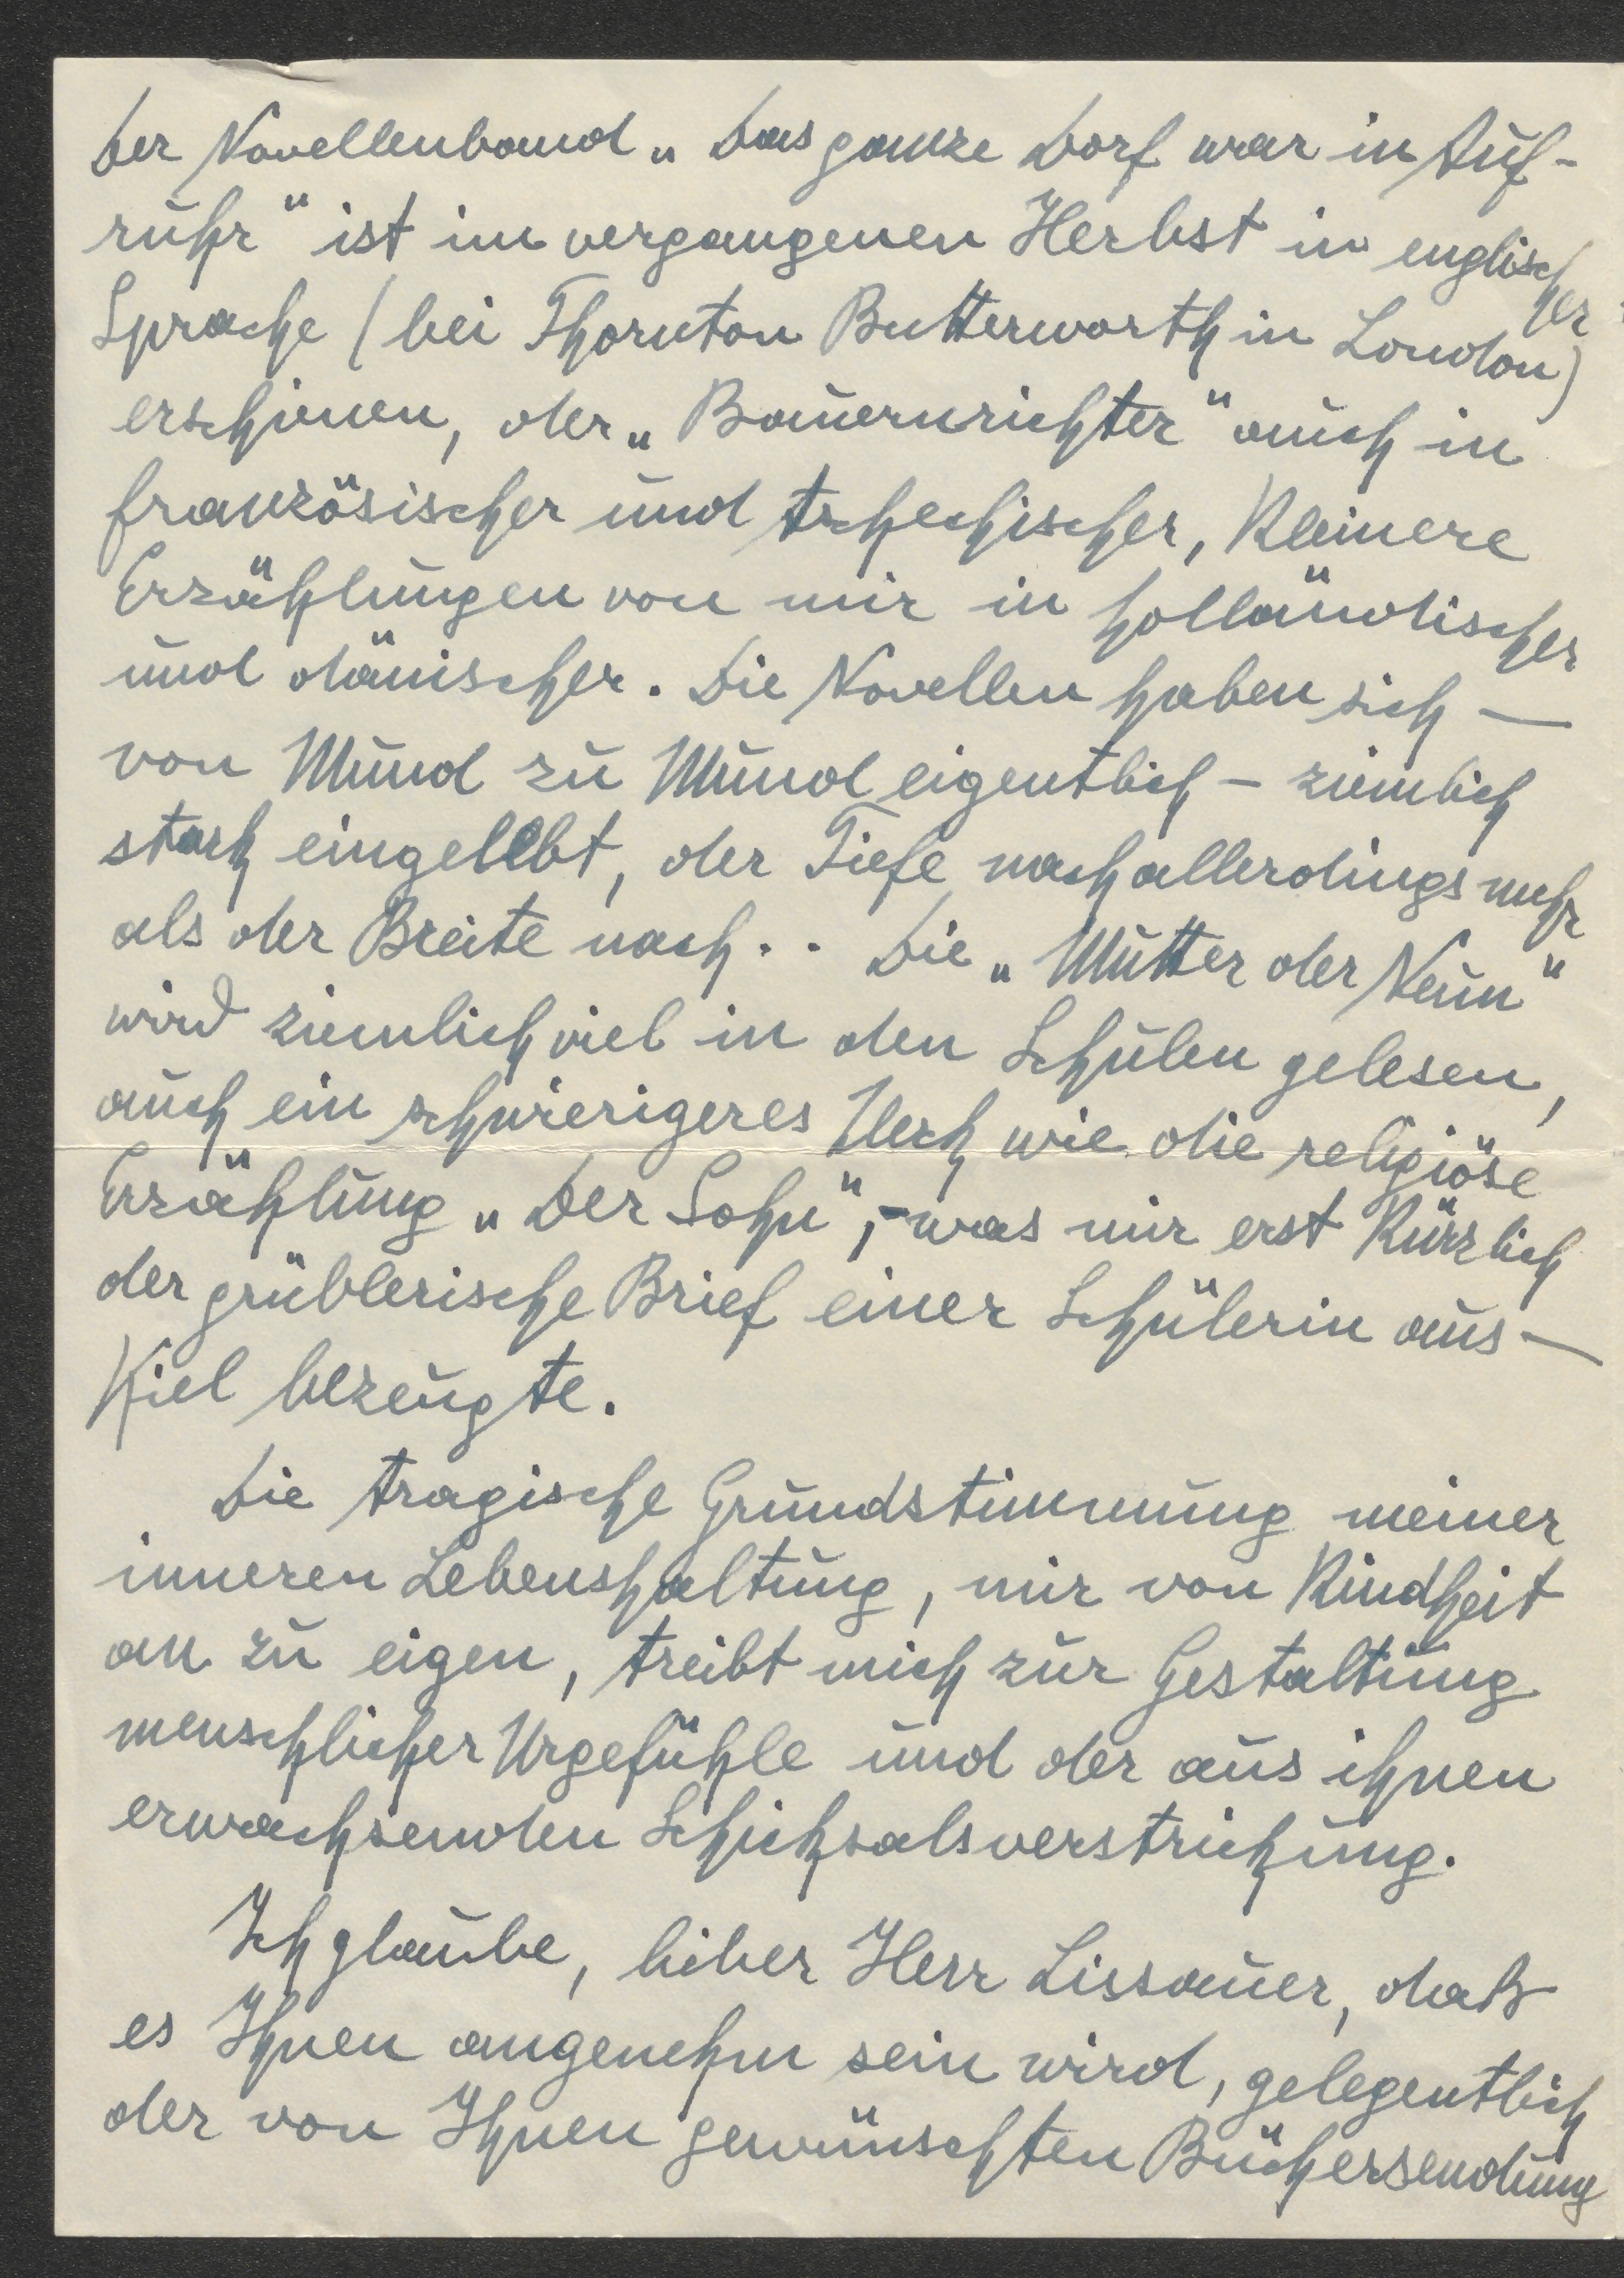 Der Novellenband „Das ganze Dorf war in Auf-
ruhr“ ist im vergangenen Herbst in englischer
Sprache (bei Thornton Butterworth in London)
erschienen, der „Bauernrichter“ auch in
französischer und tschechischer, kleinere
Erzählungen von mir in holländischer
und dänischer. Die Novellen haben sich —
von Mund zu Mund eigentlich – ziemlich
stark eingelebt, der Tiefe nach allerdings mehr
als der Breite nach.. Die „Mutter der Neun“
wird ziemlich viel in den Schulen gelesen,
auch ein schwierigeres Werk wie die religiöse
Erzählung „Der Sohn“, – was mir erst kürzlich
der grüblerische Brief einer Schülerin aus —
Kiel bezeugte.
Die tragische Grundstimmung meiner
inneren Lebenshaltung, mir von Kindheit
an zu eigen, treibt mich zur Gestaltung
menschlicher Urgefühle und der aus ihnen
erwachsenden Schicksalsverstrickung.
Ich glaube, lieber Herr Lissauer, daß
es Ihnen angenehm sein wird, gelegentlich
der von Ihnen gewünschten Büchersendung